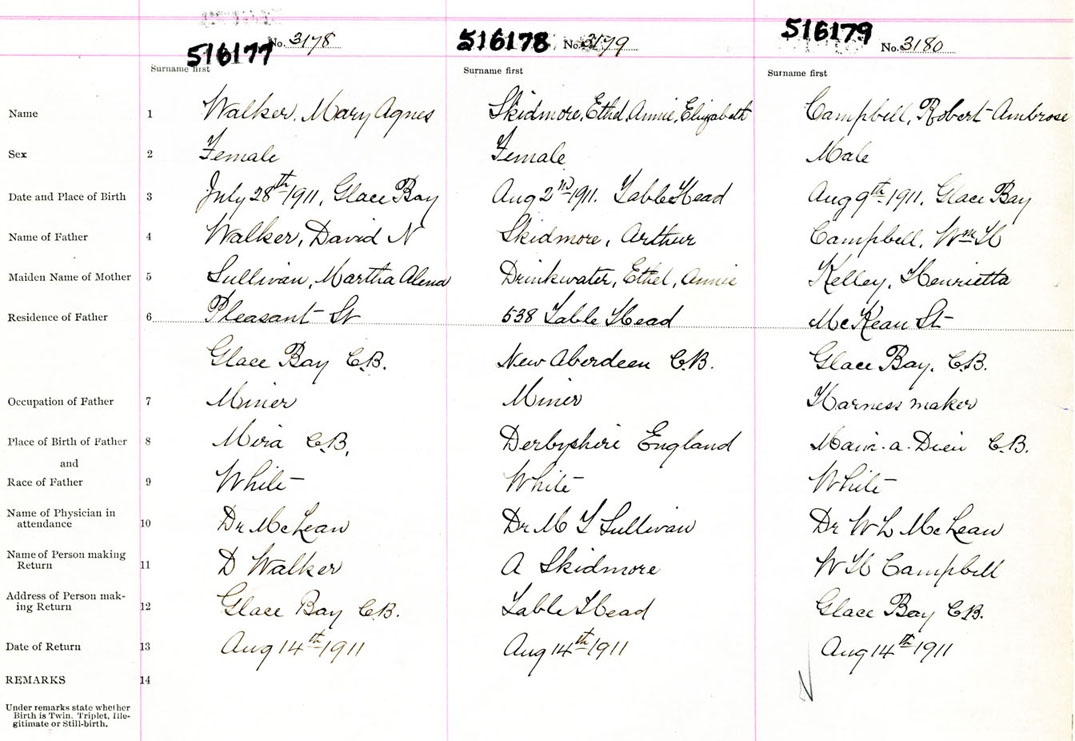 516177 No. 3178 516178 No. 3179 516179 No. 3180
Surname first Surname first Surname first
Name 1 Walker, Mary Agnes Skidmore, Ethel, Annie, Elizabeth Campbell, Robert Ambrose
Sex 2 Female Female Male
Date and Place of Birth 3 July 28th 1911, Glace Bay Aug 2nd 1911. Table Head Aug 9th 1911, Glace Bay
Name of Father 4 Walker, David N Skidmore, Arthur Campbell, Wm H
Maiden Name of Mother 5 Sullivan, Martha Alena Drinkwater, Ethel, Annie Kelley, Henrietta
Residence of Father 6 Pleasant St 538 Table Head McKean St
Glace Bay C.B. New Aberdeen C.B. Glace Bay. C.B.
Occupation of Father 7 Miner Miner Harness maker
Place of Birth of Father 8 Mira C.B, Derbyshire England C.B.
and
Race of Father 9 White White White
Name of Physician in
attendance 10 Dr McLean Dr M T Sullivan Dr W L McLean
Name of Person making
Return 11 D Walker A Skidmore W H Campbell
Address of Person mak-
ing Return 12 Glace Bay C.B. Table Head Glace Bay C.B.
Date of Return 13 Aug 14th 1911 Aug 14th 1911 Aug 14th 1911
REMARKS 14
Under remarks state whether
Birth is Twin, Triplet, Ille-
gitimate or Still-birth.